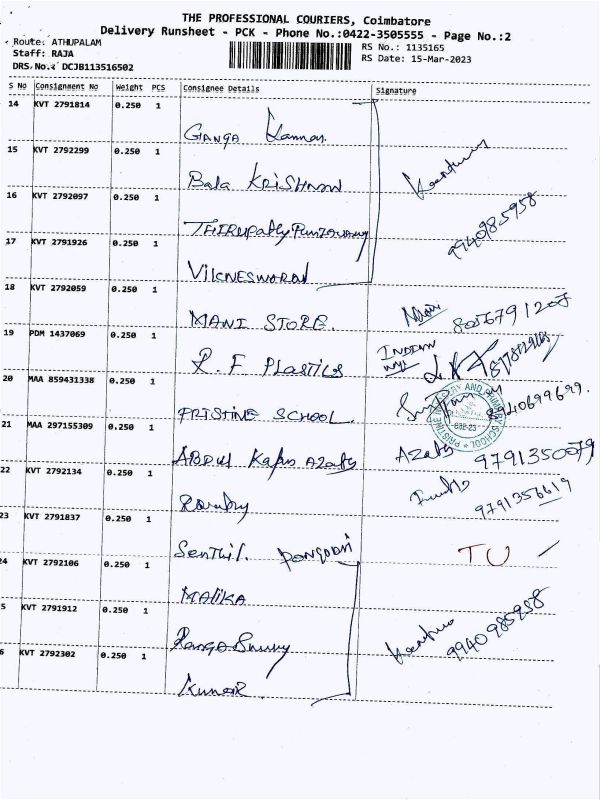 THE PROFESSIONAL COURIERS, Coimbatore
Delivery Runsheet - PCK - Phone No.:0422-3505555 - Page No.:2
Route: ATHUPALAM
Staff: RAJA
DRS.No.: DCJB113516502
RS No.: 1135165
RS Date: 15-Mar-2023
S No Consignment No Weight PCS Consignee Details Signature
14 KVT 2791814 0.250 1
GANGA Kannan
15 KVT 2792299 0.250 1
Bala KRISHNAN
16 KVT 2792097 0.250 1
9940985958
17 KVT 2791926 0.250 1
VIGNESWARAN
18 KVT 2792059 0.250 1
MANI STORE. Mani
19 PDM 1437069 0.250 1
R. F Plastics INDIAN
20 MAA 859431338 0.250 1
PRISTINE SCHOOL. 8940699699.
21 MAA 297155309 0.250 1
ABDUL Azads 9791350079
22 KVT 2792134 0.250 1
9791356619
23 KVT 2791837 0.250 1
Senthil. TU
24 KVT 2792106 0.250 1
Malika
5 KVT 2791912 0.250 1
9940985958
6 KVT 2792302 0.250 1
Kumar.